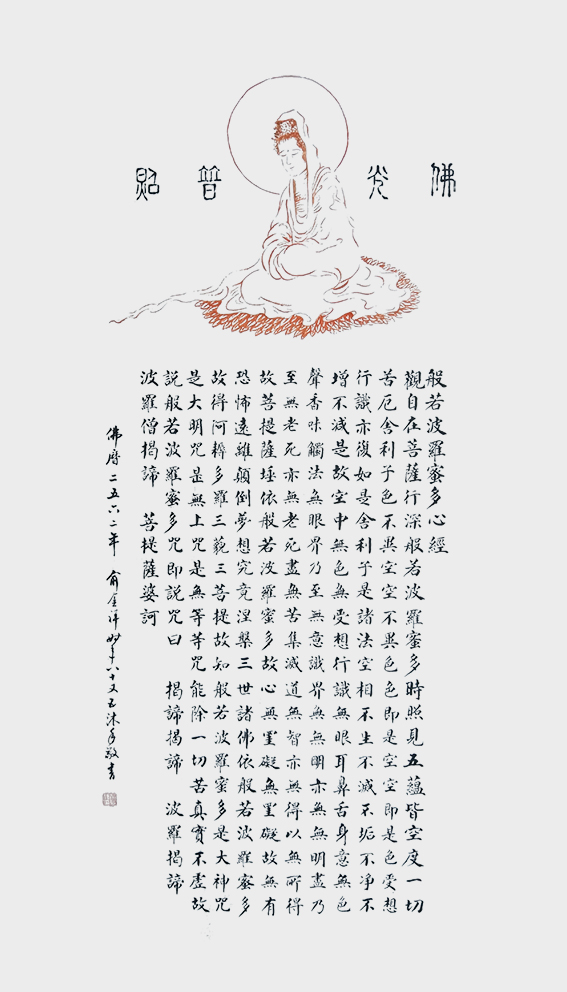 佛光普照
般若波羅蜜多心經
觀自在菩薩行深般若波羅蜜多時照見五蘊皆空度一切
苦厄舍利子色不異空空不異色色即是空空即是色受想
行識亦復如是舍利子是諸法空相不生不滅不垢不淨不
增不減是故空中無色無受想行識無眼耳鼻舌身意無色
聲香味觸法無眼界乃至無意識界無無明亦無無明盡乃
至無老死亦無老死盡無苦集滅道無智亦無得以無所得
故菩提薩埵依般若波羅蜜多故心無罣礙無罣礙故無有
恐怖遠離顛倒夢想究竟涅槃三世諸佛依般若波羅蜜多
故得阿耨多羅三藐三菩提故知般若波羅蜜多是大神咒
是大明咒是無上咒是無等等咒能除一切苦真實不虛故
説般若波羅蜜多咒即説咒曰 揭諦揭諦 波羅揭諦
波羅僧揭諦 菩提薩婆訶
佛曆二五六二年 俞金 八十又五沐手敬書